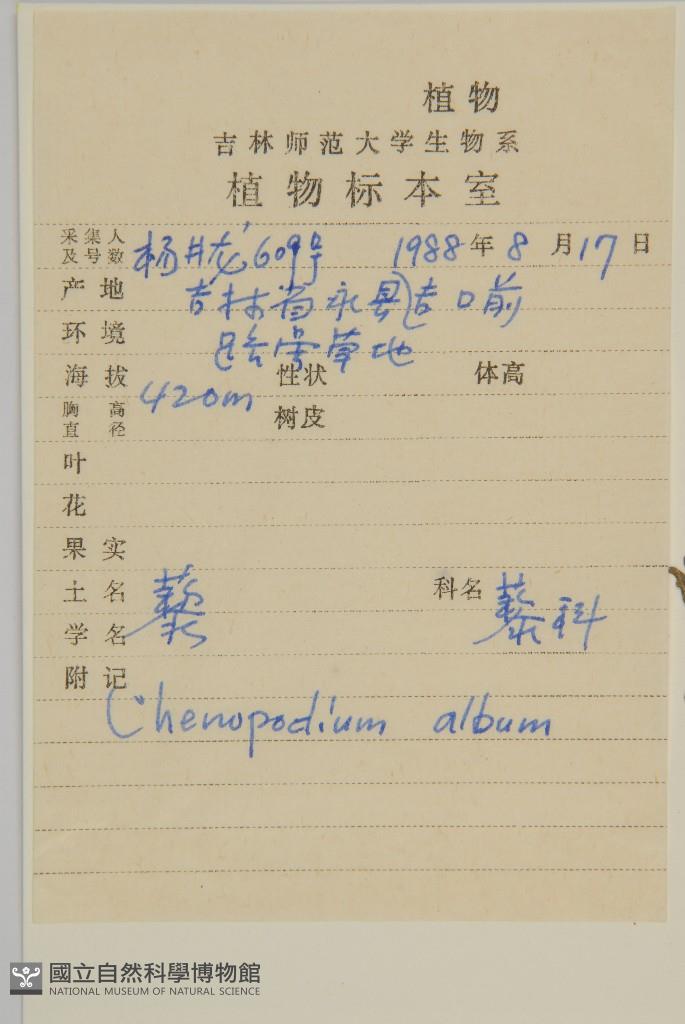 植物
吉林师范大学生物系
植物标本室
采集人及号数 杨井龙 609号 1988年8月17日
产地 吉林省永县 口前
环境 路旁草地
海拔 420m 性状 体高
胸高直径 树皮
叶
花
果实
土名 藜 科名 藜科
学名
附记
Chenopodium album
國立自然科學博物館
NATIONAL MUSEUM OF NATURAL SCIENCE